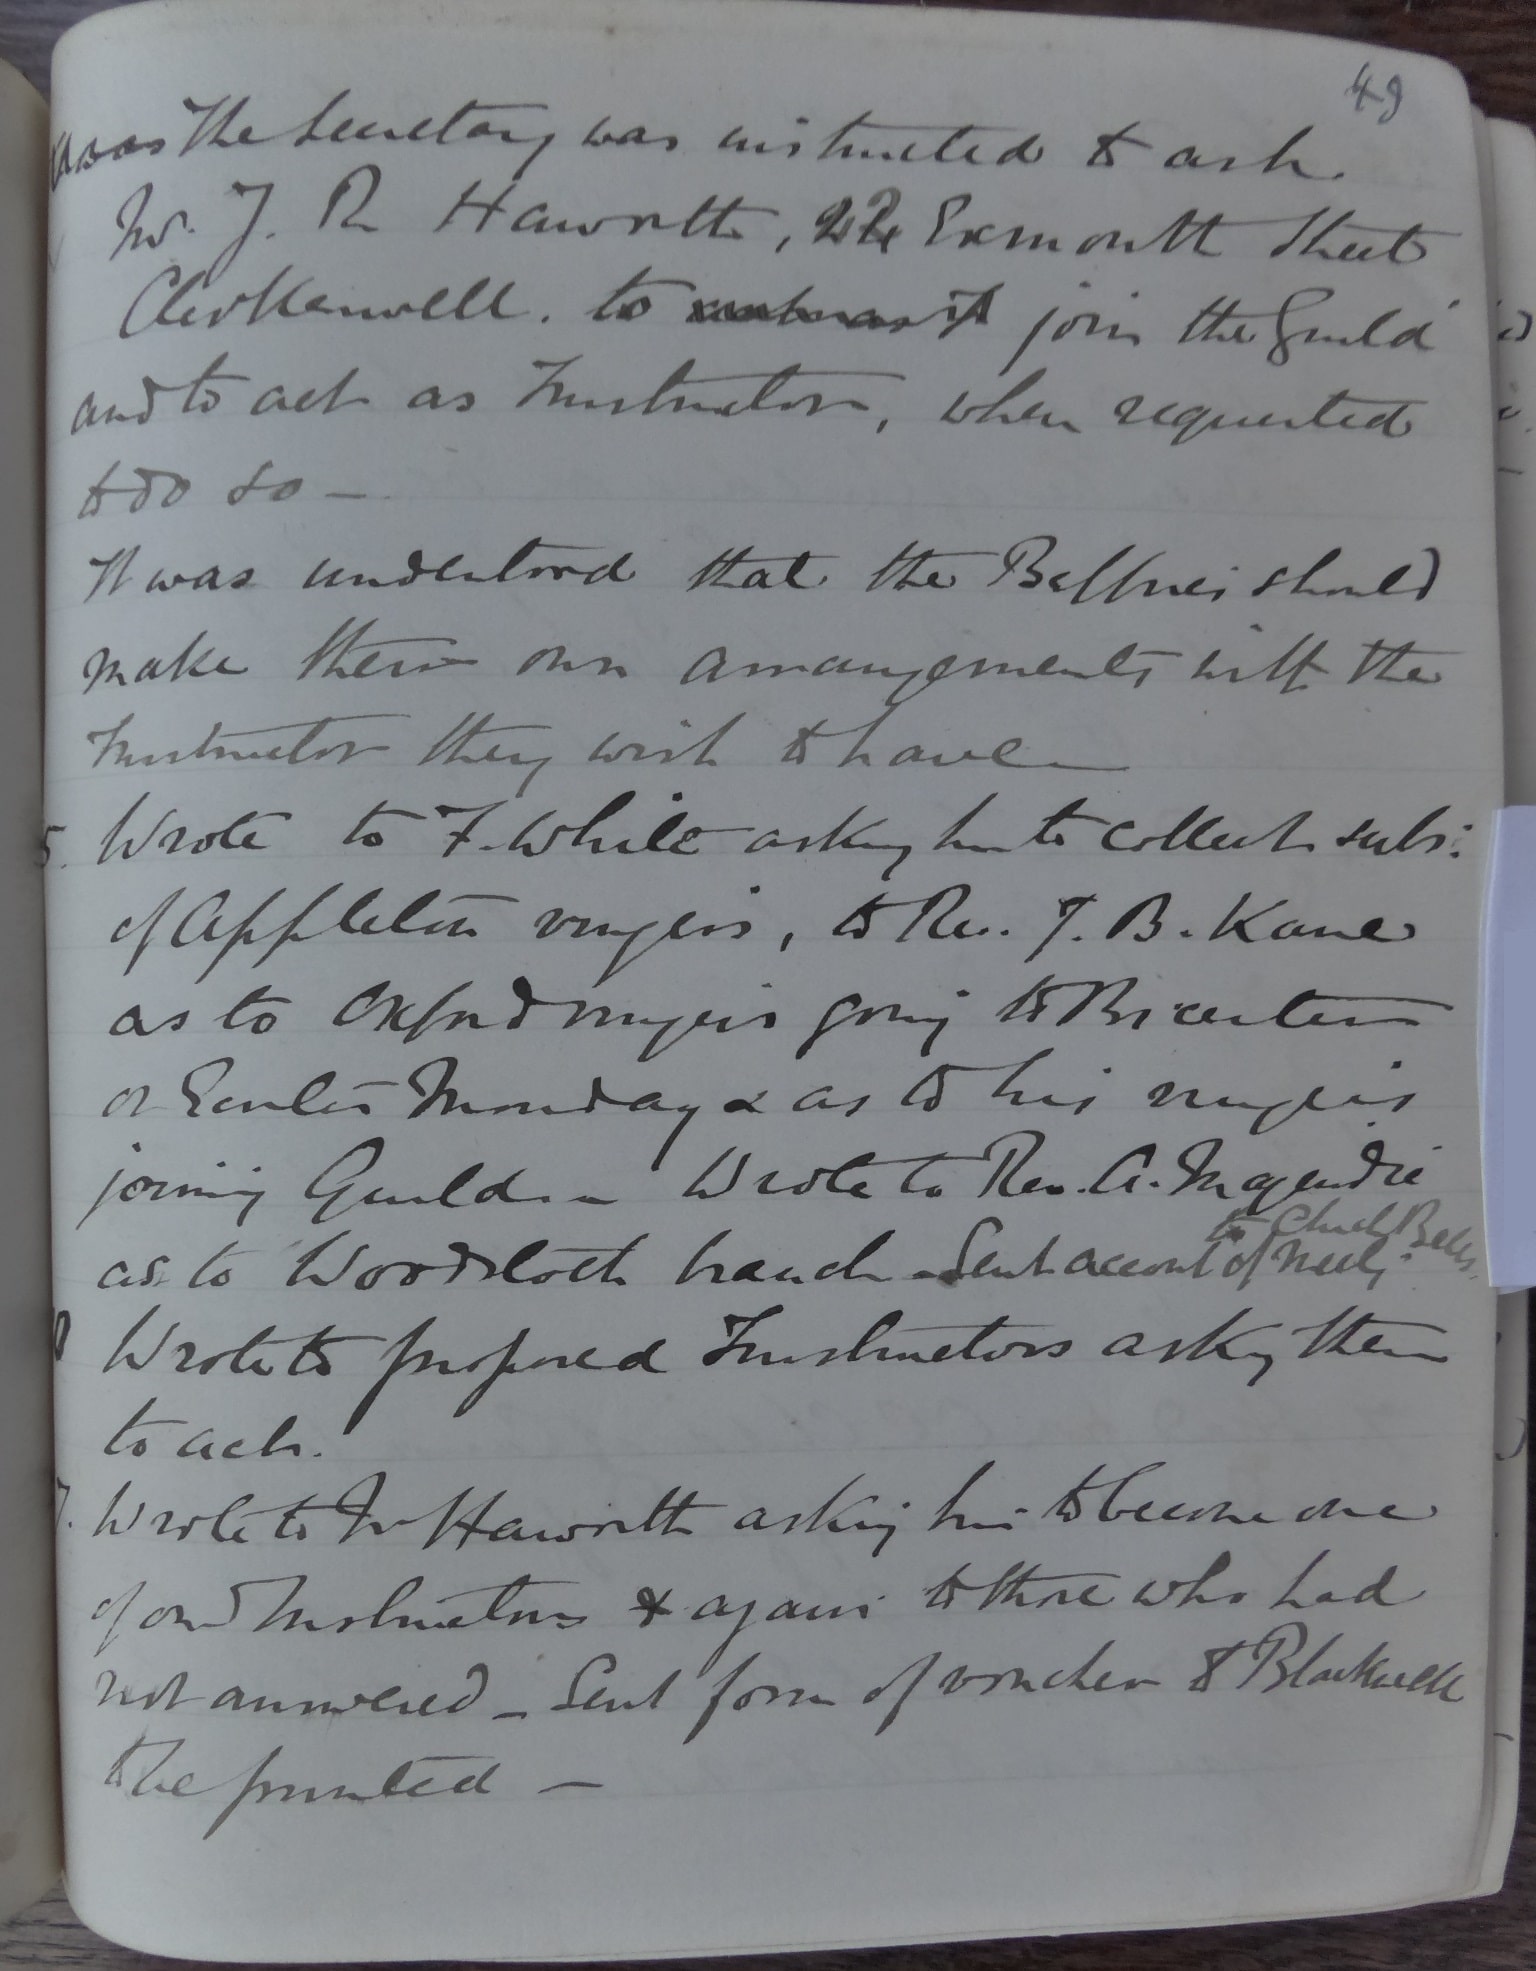 49
The Secretary was instructed to ask
Mr. J. R Haworth, Exmouth Street
Clerkenwell. to join the Guild
and to act as Instructor, when requested
to do so —
It was understood that the Belfries should
make their own arrangements with the
Instructor they wish to have —
5. Wrote to F. White asking him to collect subs:
of Appleton ringers, to Rev. J. B. Kane
as to Oxford ringers going to Bicester
on Easter Monday & as to his ringers
joining Guild. — Wrote to Rev. A. Magendie
to Church Bells.
as to Woodstock branch — Sent account of Meetg.
Wrote to proposed Instructors asking them
to act.
7. Wrote to Mr Haworth asking him to become one
of our Instructors & again to those who had
not answered — Sent form of voucher to Blackwell
to be printed —